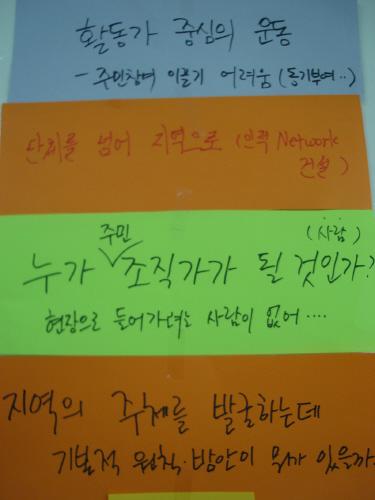 활동가 중심의 운동
- 주민참여 이끌기 어려움 (동기부여..)
단체를 넘어 지역으로 (인력 Network
건설)
주민 (사람)
누가 조직가가 될 것인가?
현장으로 들어가려는 사람이 없어....
지역의 주체를 발굴하는데
기본적 원칙·방안이 뭐가 있을까